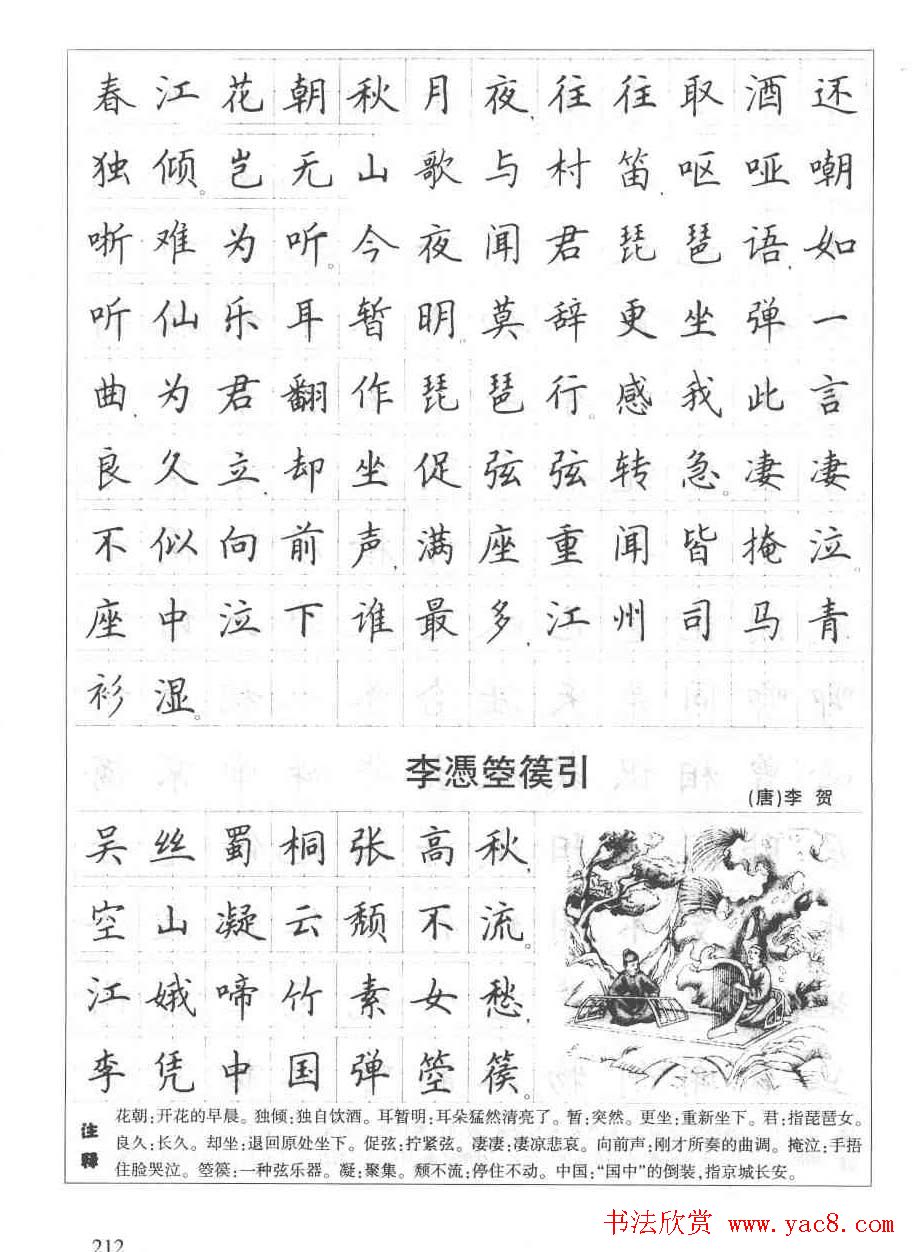 春江花朝秋月夜,往往取酒还
独倾。岂无山歌与村笛,呕哑嘲
哳难为听。今夜闻君琵琶语,如
听仙乐耳暂明。莫辞更坐弹一
曲,为君翻作琵琶行。感我此言
良久立,却坐促弦弦转急。凄凄
不似向前声,满座重闻皆掩泣。
座中泣下谁最多,江州司马青
衫湿。
李憑箜篌引
(唐)李 贺
吴丝蜀桐张高秋,
空山凝云颓不流。
江娥啼竹素女愁,
李凭中国弹箜篌。
注释
花朝:开花的早晨。独倾:独自饮酒。耳暂明:耳朵猛然清亮了。暂:突然。更坐:重新坐下。君:指琵琶女。
良久:长久。却坐:退回原处坐下。促弦:拧紧弦。凄凄:凄凉悲哀。向前声:刚才所奏的曲调。掩泣:手捂
住脸哭泣。箜篌:一种弦乐器。凝:聚集。颓不流:停住不动。中国:“国中”的倒装,指京城长安。
212
书法欣赏 www.yac8.com